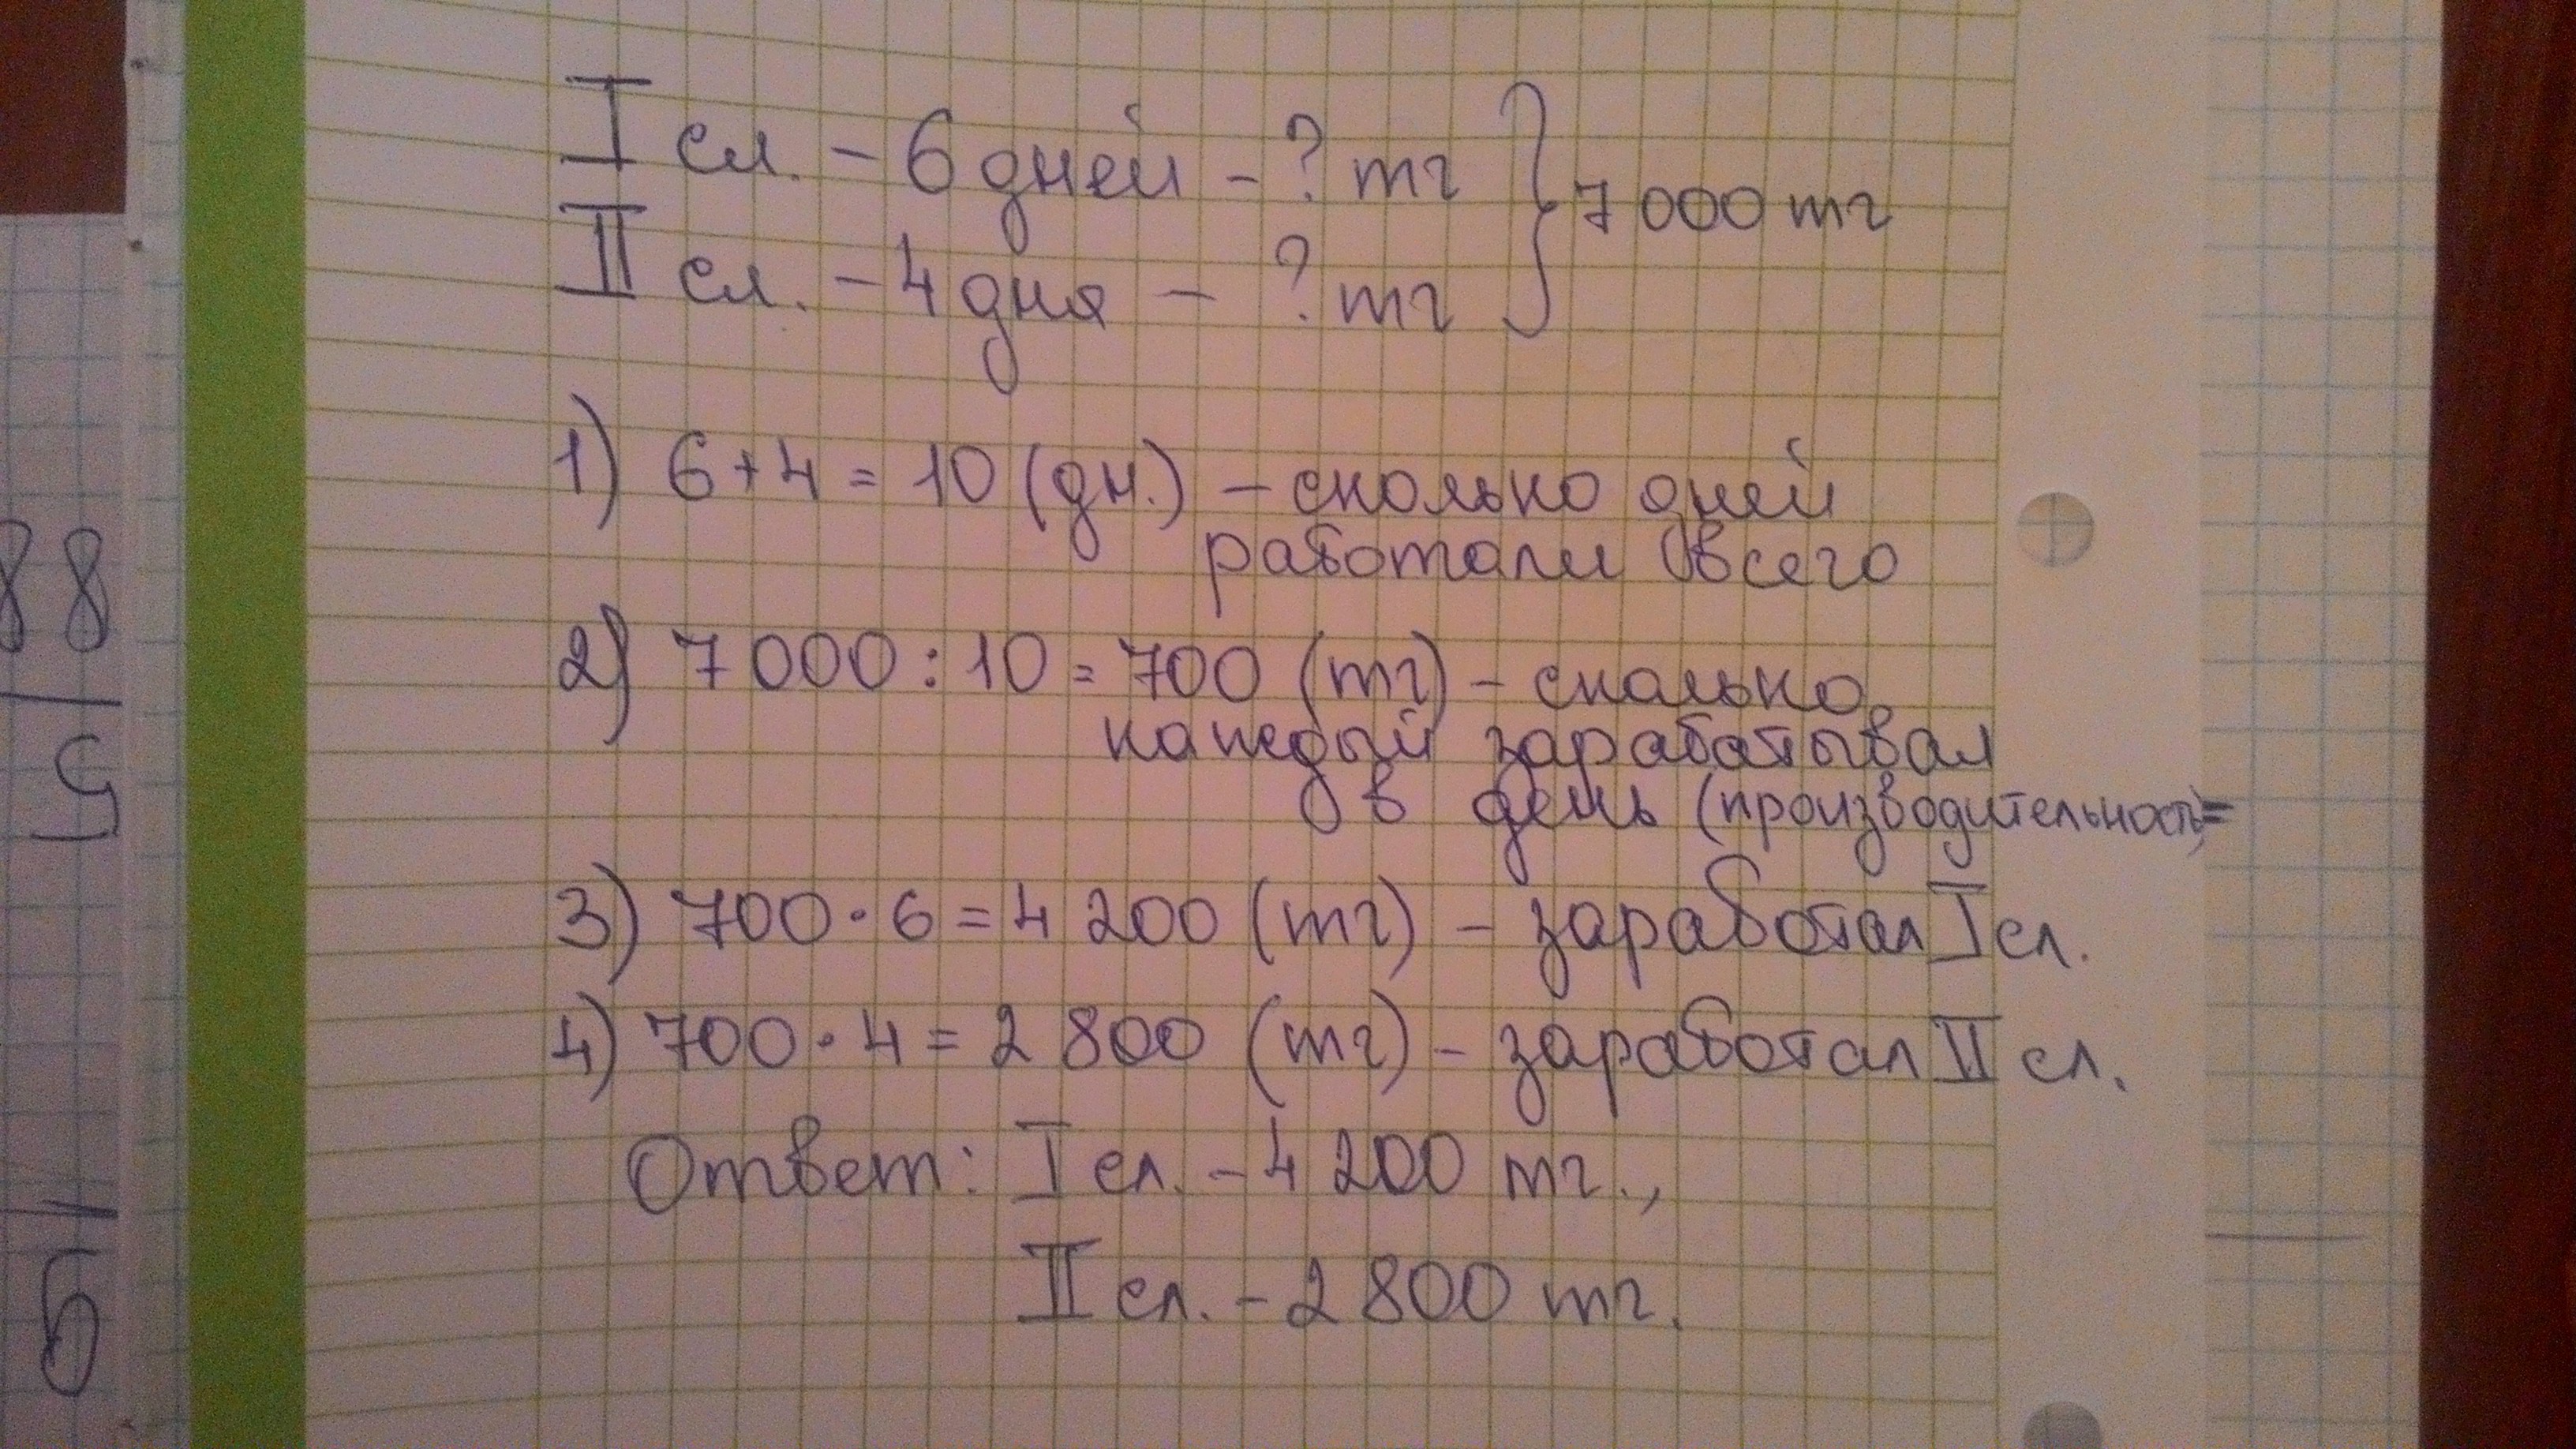 I сл. - 6 дней - ? тг } 7 000 тг
II сл. - 4 дня - ? тг
1) 6 + 4 = 10 (дн.) - сколько дней
работали всего
2) 7 000 : 10 = 700 (тг) - сколько
каждый зарабатывал
в день (производительность)
3) 700 · 6 = 4 200 (тг) - заработал I сл.
4) 700 · 4 = 2 800 (тг) - заработал II сл.
Ответ: I сл. - 4 200 тг.,
II сл. - 2 800 тг.
88
5